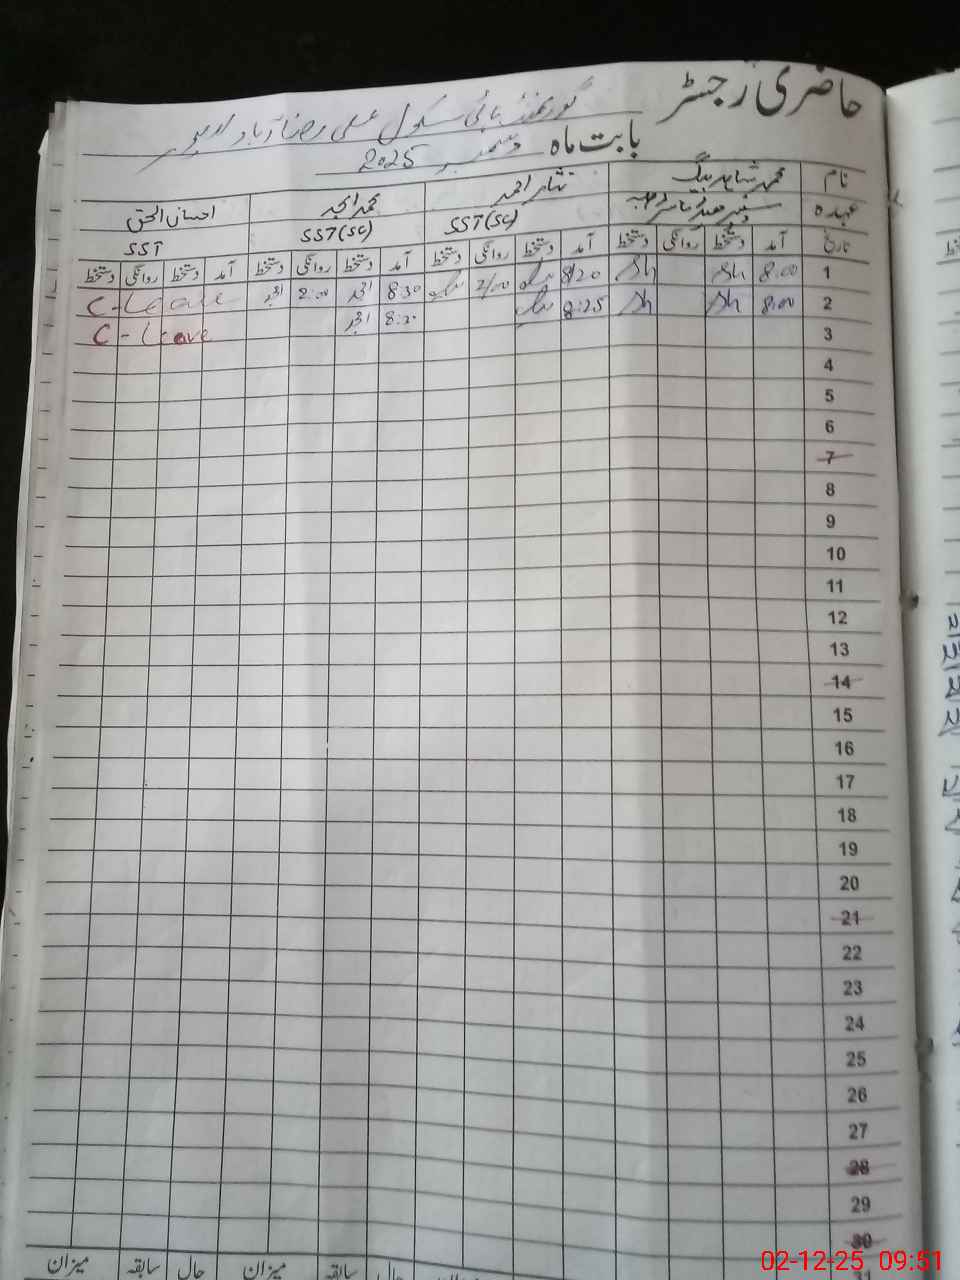 حاضری رجسٹر
گورنمنٹ ہائی سکول علی رضا آباد لاہور
بابت ماہ دسمبر 2025
نام محمد شاہد بیگ نثار احمد محمد امجد احسان الحق
عہدہ سینئر ہیڈ ماسٹر SST(SC) SST(SC) SST
تاریخ آمد دستخط روانگی دستخط آمد دستخط روانگی دستخط آمد دستخط روانگی دستخط آمد دستخط روانگی دستخط
1 8:00 8/20 2/00 8:30 امجد 2:00 امجد C-Leave
2 8:00 8:25 8:20 امجد C-Leave
3
4
5
6
7
8
9
10
11
12
13
14
15
16
17
18
19
20
21
22
23
24
25
26
27
28
29
30
31
حال سابقہ میزان حال سابقہ میزان
02-12-25 09:51